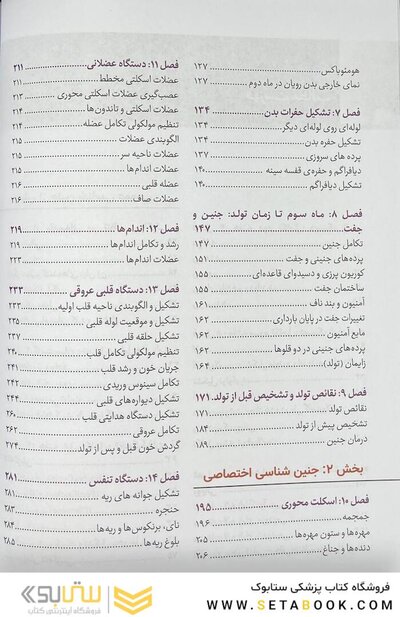 هومئوباکس ۱۳۷
نمای خارجی بدن رویان در ماه دوم ۱۳۷
فصل ۷: تشکیل حفرات بدن ۱۳۴
لوله‌ای روی لوله‌ای دیگر ۱۳۴
تشکیل حفره بدن ۱۳۴
پرده های سروزی ۱۳۷
دیافراگم و حفره‌ی قفسه سینه ۱۴۰
تشکیل دیافراگم ۱۴۰
فصل ۸: ماه سوم تا زمان تولد: جنین و
جفت ۱۴۷
تکامل جنین ۱۴۷
پرده‌های جنینی و جفت ۱۵۱
کوریون پرزی و دسیدوای قاعده‌ای ۱۵۵
ساختمان جفت ۱۵۵
آمنیون و بند ناف ۱۶۱
تغییرات جفت در پایان بارداری ۱۶۲
مایع آمنیون ۱۶۲
پرده‌های جنینی در دو قلوها ۱۶۲
زایمان (تولد) ۱۶۴
فصل ۹: نقائص تولد و تشخیص قبل از تولد ۱۷۱
نقائص تولد ۱۷۱
تشخیص پیش از تولد ۱۸۴
درمان جنین ۱۸۹
بخش ۲: جنین شناسی اختصاصی
فصل ۱۰: اسکلت محوری ۱۹۵
جمجمه ۱۹۶
مهره‌ها و ستون مهره‌ها ۲۰۵
دنده‌ها و جناغ ۲۰۶
فصل ۱۱: دستگاه عضلانی ۲۱۱
عضلات اسکلتی مخطط ۲۱۱
عصب‌گیری عضلات اسکلتی محوری ۲۱۳
عضلات اسکلتی و تاندون‌ها ۲۱۴
تنظیم مولکولی تکامل عضله ۲۱۴
الگوبندی عضلات ۲۱۵
عضلات ناحیه سر ۲۱۵
عضلات اندام‌ها ۲۱۵
عضله قلبی ۲۱۶
عضلات صاف ۲۱۶
فصل ۱۲: اندام‌ها ۲۱۹
رشد و تکامل اندام‌ها ۲۱۹
عضلات اندام‌ها ۲۲۳
فصل ۱۳: دستگاه قلبی عروقی ۲۳۳
تشکیل و الگوبندی ناحیه قلب اولیه ۲۳۳
تشکیل و موقعیت لوله قلبی ۲۳۵
تشکیل حلقه قلبی ۲۳۷
تنظیم مولکولی تکامل قلب ۲۴۰
جریان خون و رشد قلب ۲۴۱
تکامل سینوس وریدی ۲۴۲
تشکیل دیواره‌های قلبی ۲۴۴
تشکیل دستگاه هدایتی قلب ۲۶۰
تکامل عروقی ۲۶۲
گردش خون قبل و پس از تولد ۲۷۴
فصل ۱۴: دستگاه تنفس ۲۸۱
تشکیل جوانه های ریه ۲۸۱
حنجره ۲۸۳
نای، برنکوس‌ها و ریه‌ها ۲۸۴
بلوغ ریه‌ها ۲۸۵
ستابوک
فروشگاه اینترنتی کتاب
فروشگاه کتاب پزشکی ستابوک
WWW.SETABOOK.COM